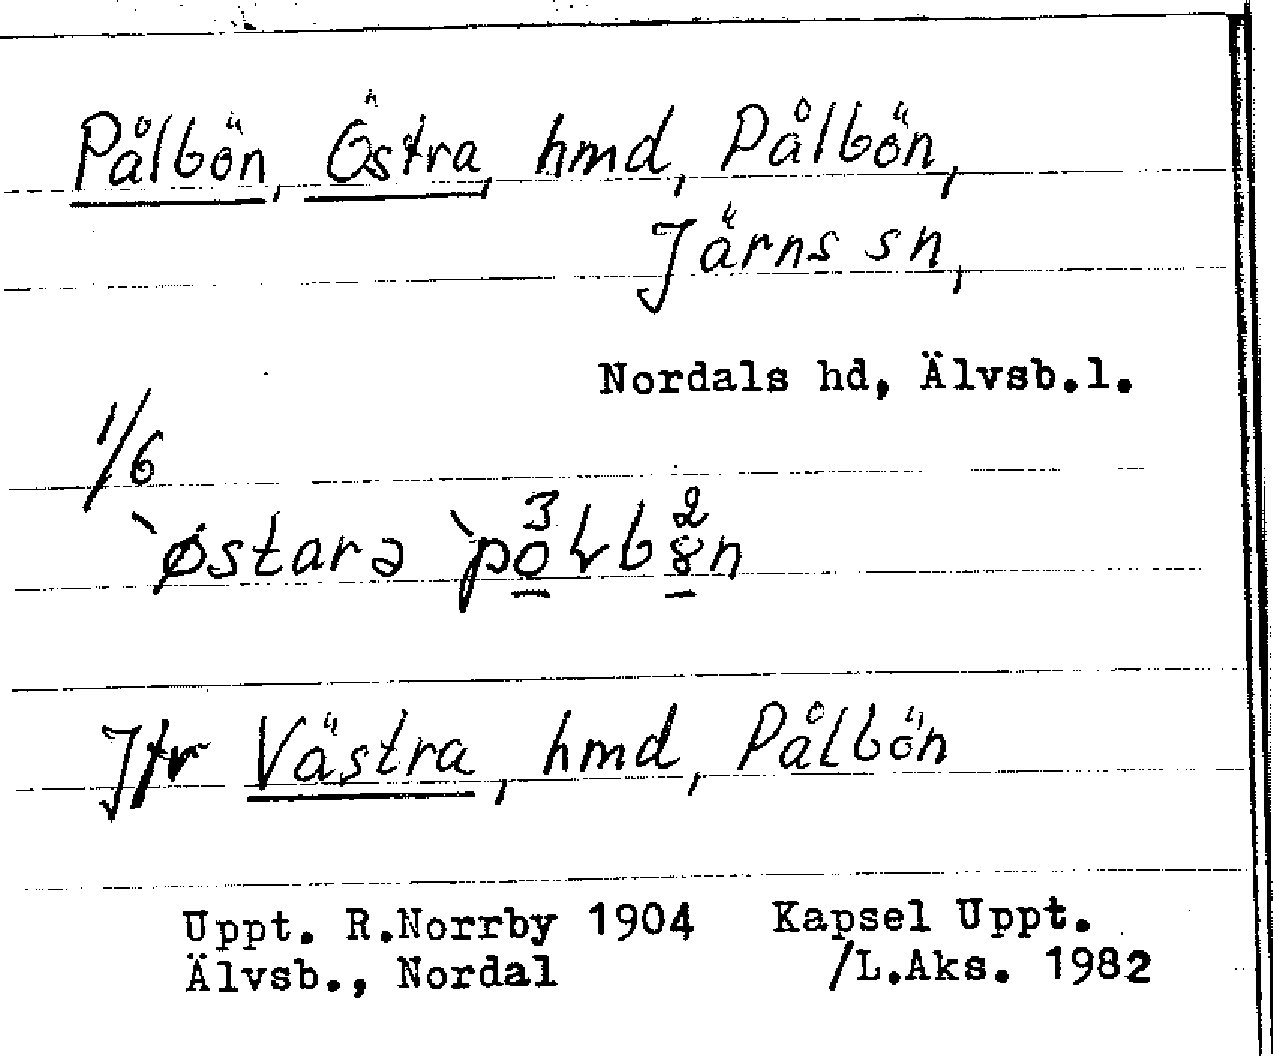 Pålbön, Östra, hmd, Pålbön,
Järns sn,
Nordals hd, Älvsb.l.
1/6
`østara `po³ɫb8²n
Jfr Västra, hmd, Pålbön
Uppt. R.Norrby 1904 Kapsel Uppt.
Älvsb., Nordal /L.Aks. 1982